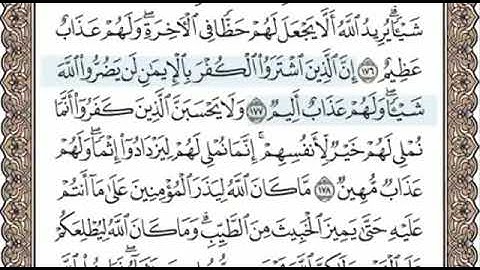 شَيْـًٔا ۗ يُرِيدُ ٱللَّهُ أَلَّا يَجْعَلَ لَهُمْ حَظًّا فِى ٱلْـَٔاخِرَةِ ۖ وَلَهُمْ عَذَابٌ
عَظِيمٌ ١٧٦ إِنَّ ٱلَّذِينَ ٱشْتَرَوُا۟ ٱلْكُفْرَ بِٱلْإِيمَٰنِ لَن يَضُرُّوا۟ ٱللَّهَ
شَيْـًٔا ۖ وَلَهُمْ عَذَابٌ أَلِيمٌ ١٧٧ وَلَا يَحْسَبَنَّ ٱلَّذِينَ كَفَرُوٓا۟ أَنَّمَا
نُمْلِى لَهُمْ خَيْرٌ لِّأَنفُسِهِمْ ۚ إِنَّمَا نُمْلِى لَهُمْ لِيَزْدَادُوٓا۟ إِثْمًا ۚ وَلَهُمْ
عَذَابٌ مُّهِينٌ ١٧٨ مَّا كَانَ ٱللَّهُ لِيَذَرَ ٱلْمُؤْمِنِينَ عَلَىٰ مَآ أَنتُمْ
عَلَيْهِ حَتَّىٰ يَمِيزَ ٱلْخَبِيثَ مِنَ ٱلطَّيِّبِ ۗ وَمَا كَانَ ٱللَّهُ لِيُطْلِعَكُمْ